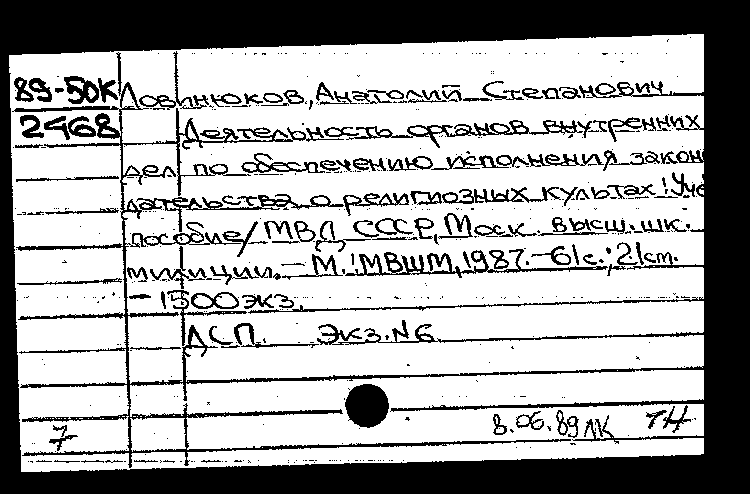 89-50К Ловинюков, Анатолий Степанович.
2468 Деятельность органов внутренних
дел по обеспечению исполнения закон
дательства о религиозных культах: Уче
пособие/МВД СССР, Моск. высш. шк.
милиции. - М.: МВШМ, 1987. - 61с.; 21см.
- 1500экз.
ДСП. Экз. №6
7 8.06.89 ЛК ТН